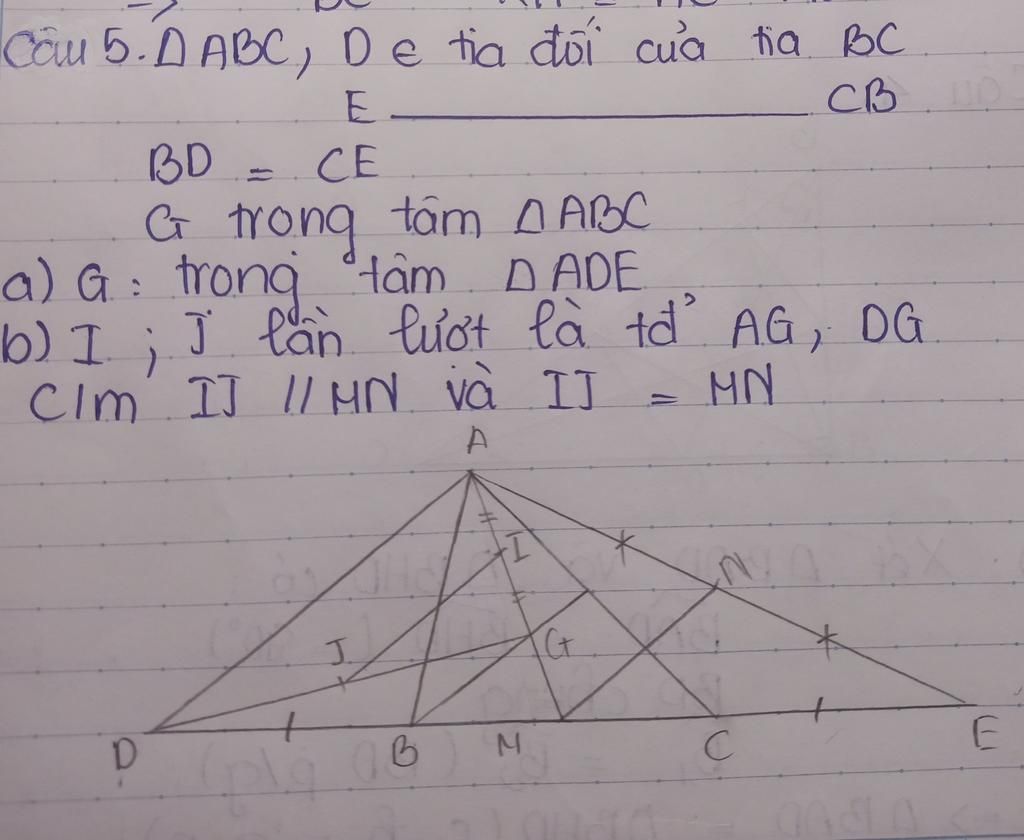 Câu 5. Δ ABC, D ∈ tia đối của tia BC
E ——————— CB
BD = CE
G trong tâm ΔABC
a) G : trong tâm ΔADE
b) I ; J lần lượt là tđ AG, DG
C/m IJ // MN và IJ = MN
A
I
N
J
G
D B M C E